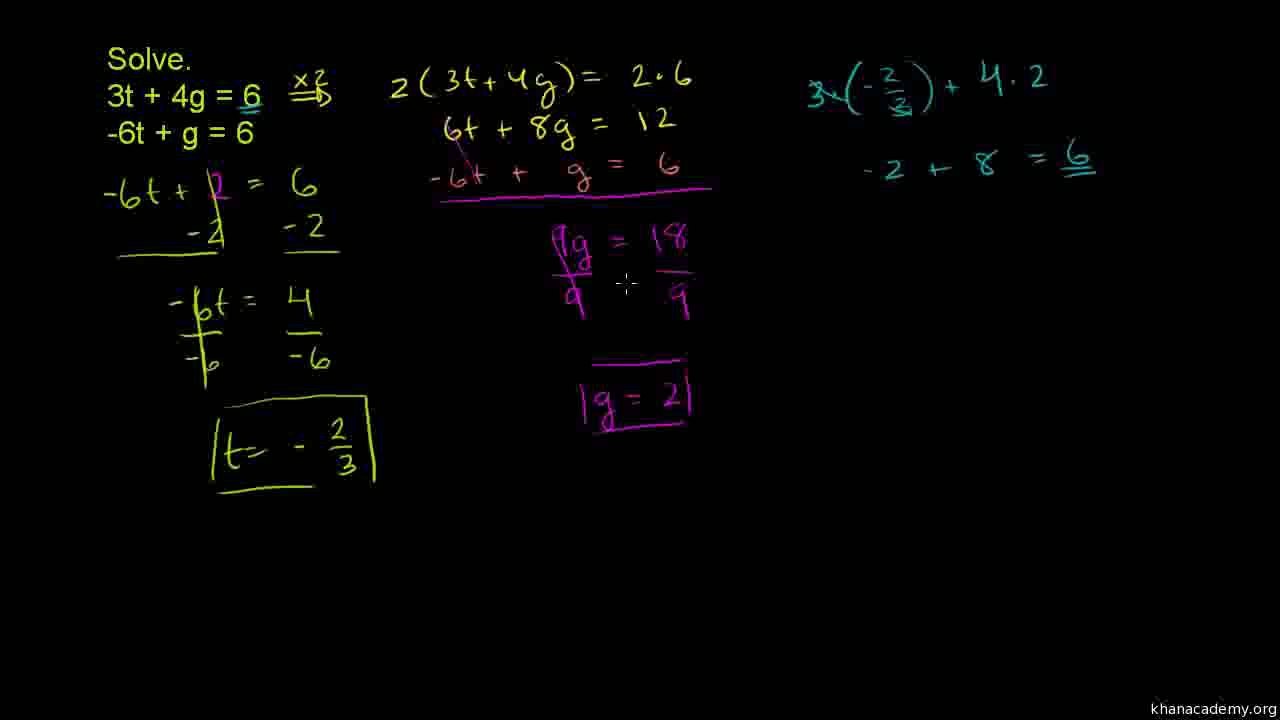 Solve.
3t + 4g = 6 ×2 ⇒
-6t + g = 6
-6t + 2 = 6
-2 -2
-6t = 4
-6 -6
t = - 2/3
2(3t + 4g) = 2·6
6t + 8g = 12
-6t + g = 6
9g = 18
9 9
g = 2
3·(-2/3) + 4·2
-2 + 8 = 6
khanacademy.org